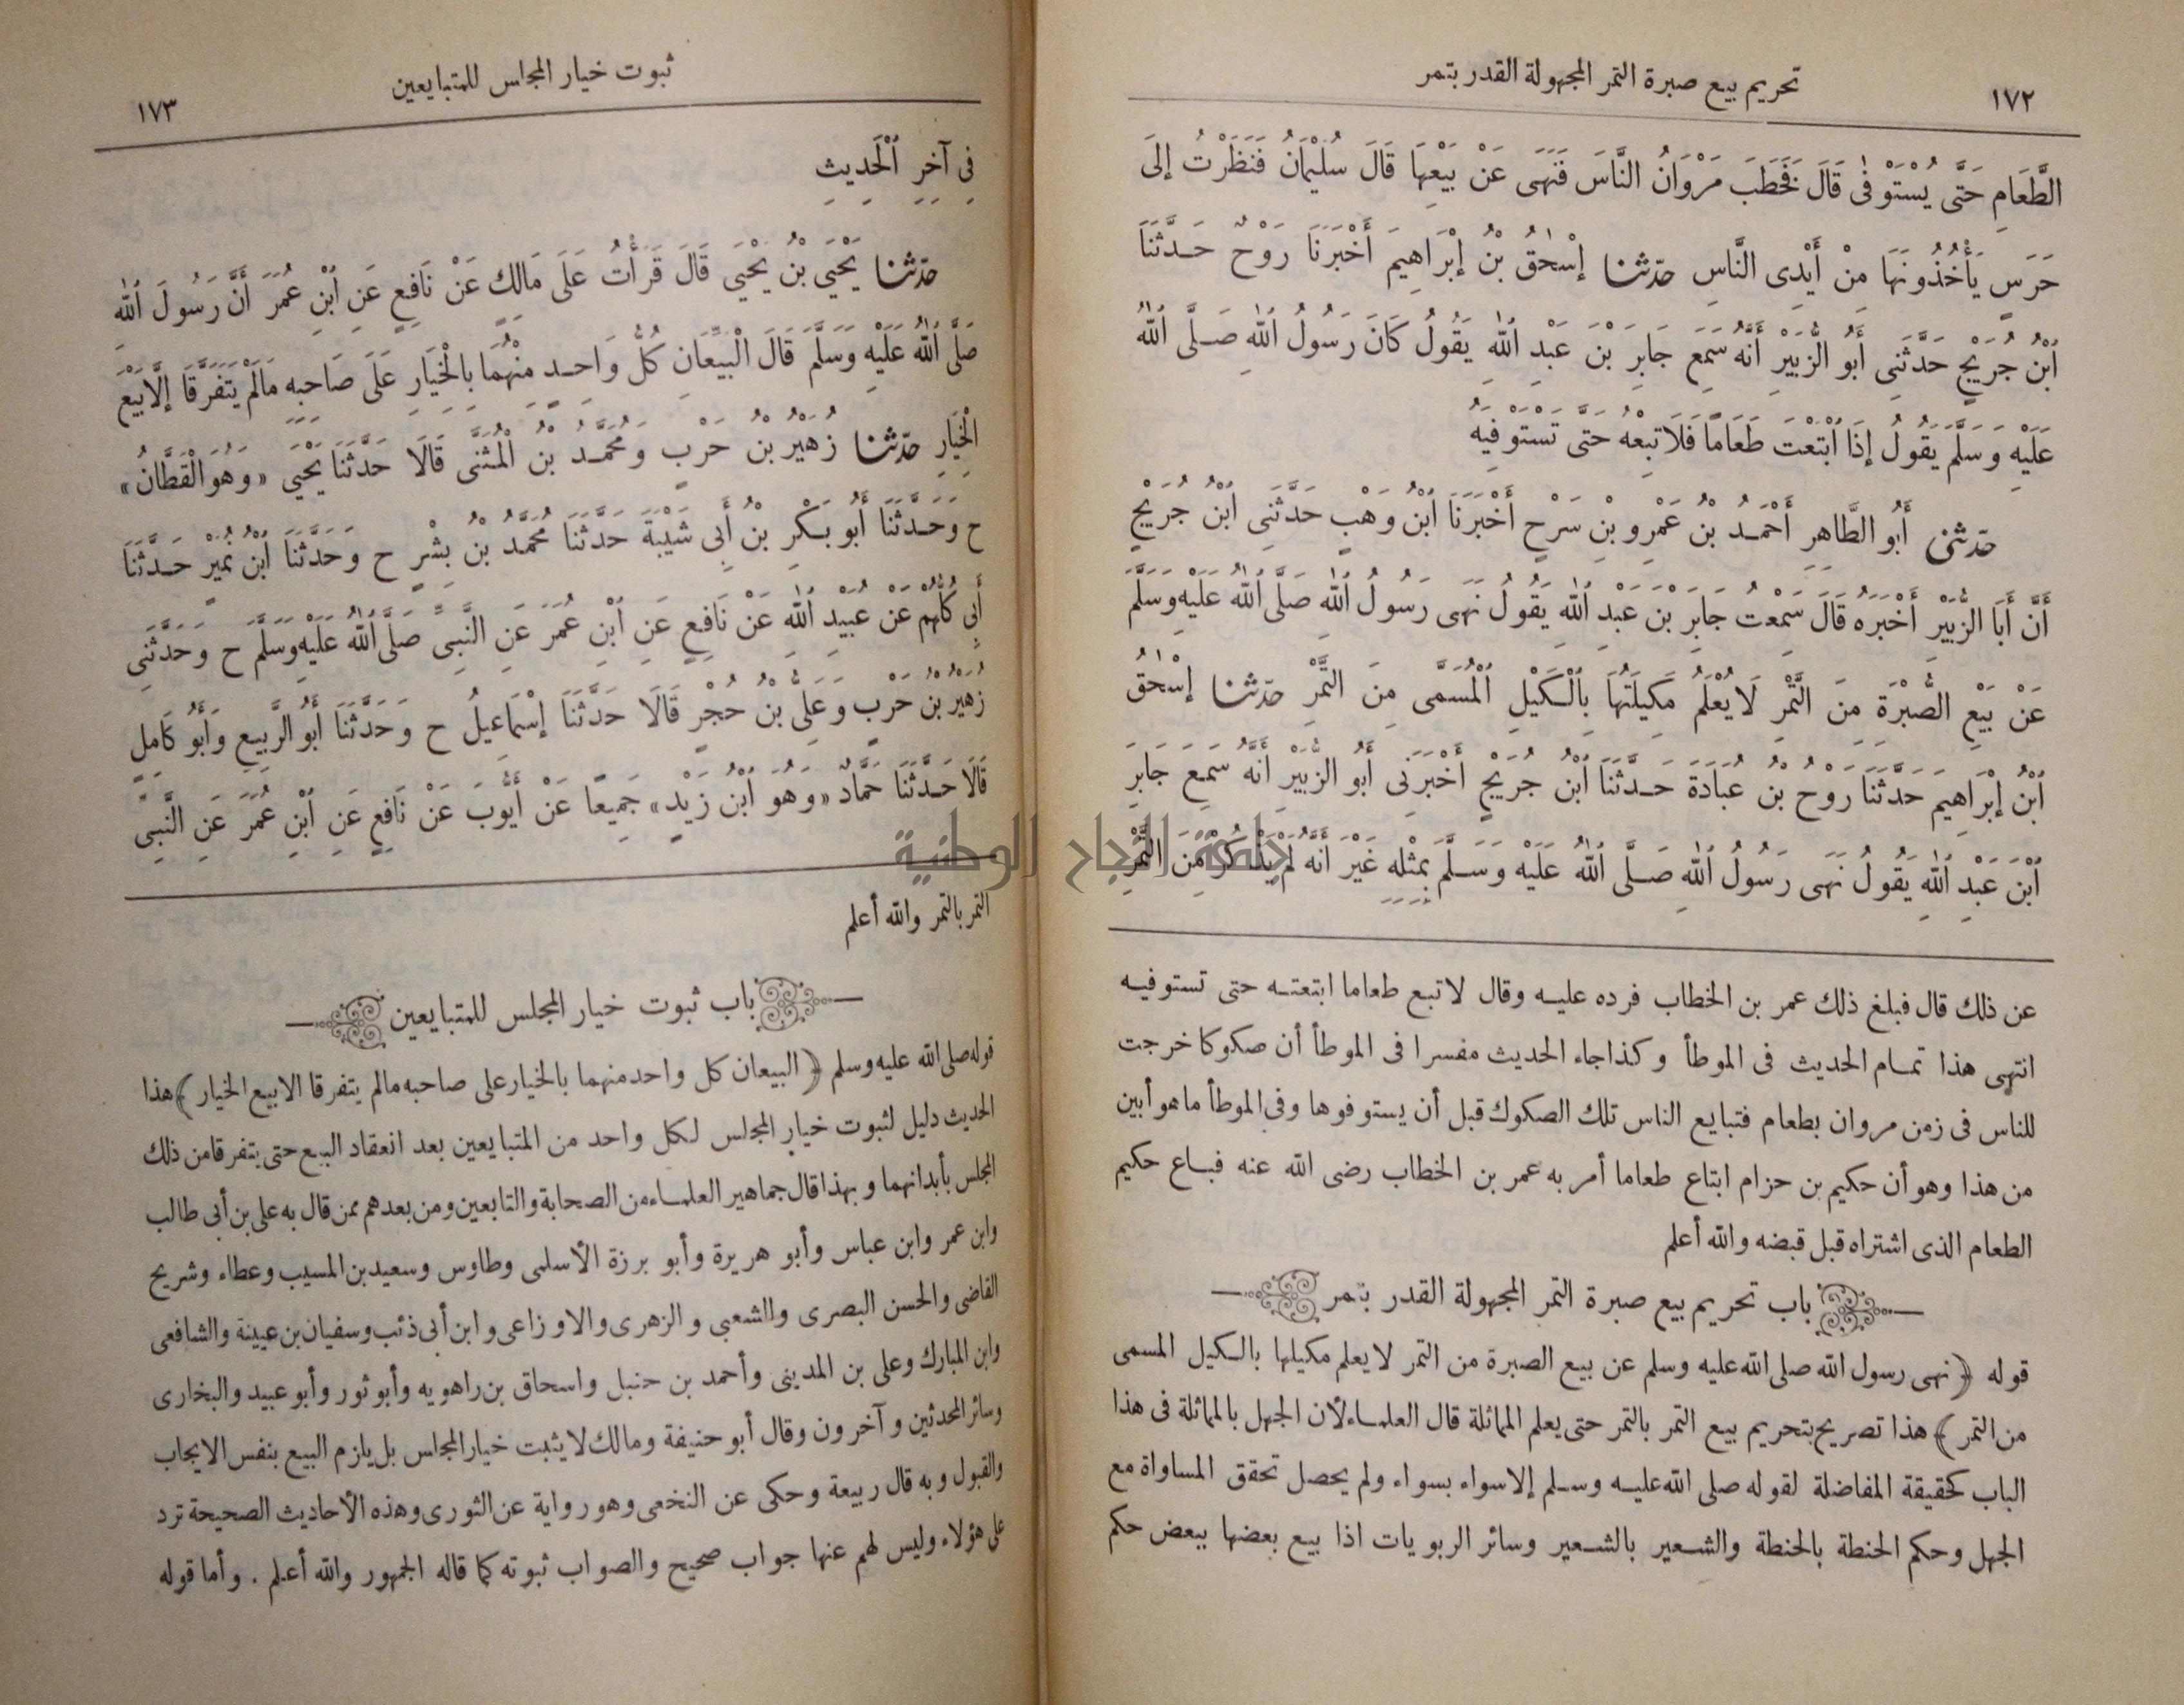 تحريم بيع صبرة التمر المجهولة القدر بتمر
١٧٢
الطَّعَامِ حَتَّى يُسْتَوْفَى قَالَ فَخَطَبَ مَرْوَانُ النَّاسَ فَنَهَى عَنْ بَيْعِهَا قَالَ سُلَيْمَانُ فَنَظَرْتُ إِلَى
حَرَسٍ يَأْخُذُونَهَا مِنْ أَيْدِى النَّاسِ حَدَّثَنَا إِسْحٰقُ بْنُ إِبْرَاهِيمَ أَخْبَرَنَا رَوْحٌ حَدَّثَنَا
ابْنُ جُرَيْجٍ حَدَّثَنِى أَبُو الزُّبَيْرِ أَنَّهُ سَمِعَ جَابِرَ بْنَ عَبْدِ اللهِ يَقُولُ كَانَ رَسُولُ اللهِ صَلَّى اللهُ
عَلَيْهِ وَسَلَّمَ يَقُولُ إِذَا ابْتَعْتَ طَعَامًا فَلَا تَبِعْهُ حَتَّى تَسْتَوْفِيَهُ
حَدَّثَنِى أَبُو الطَّاهِرِ أَحْمَدُ بْنُ عَمْرِو بْنِ سَرْحٍ أَخْبَرَنَا ابْنُ وَهْبٍ حَدَّثَنِى ابْنُ جُرَيْجٍ
أَنَّ أَبَا الزُّبَيْرِ أَخْبَرَهُ قَالَ سَمِعْتُ جَابِرَ بْنَ عَبْدِ اللهِ يَقُولُ نَهَى رَسُولُ اللهِ صَلَّى اللهُ عَلَيْهِ وَسَلَّمَ
عَنْ بَيْعِ الصُّبْرَةِ مِنَ التَّمْرِ لَا يُعْلَمُ مَكِيلَتُهَا بِالْكَيْلِ الْمُسَمَّى مِنَ التَّمْرِ حَدَّثَنَا إِسْحٰقُ
ابْنُ إِبْرَاهِيمَ حَدَّثَنَا رَوْحُ بْنُ عُبَادَةَ حَدَّثَنَا ابْنُ جُرَيْجٍ أَخْبَرَنِى أَبُو الزُّبَيْرِ أَنَّهُ سَمِعَ جَابِرَ
ابْنَ عَبْدِ اللهِ يَقُولُ نَهَى رَسُولُ اللهِ صَلَّى اللهُ عَلَيْهِ وَسَلَّمَ بِمِثْلِهِ غَيْرَ أَنَّهُ لَمْ يَذْكُرْ مِنَ التَّمْرِ
عن ذلك قال فبلغ ذلك عمر بن الخطاب فرده عليه وقال لا تبع طعاما ابتعته حتى تستوفيه
انتهى هذا تمام الحديث فى الموطأ وكذا جاء الحديث مفسرا فى الموطأ أن صكوكا خرجت
للناس فى زمن مروان بطعام فتبايع الناس تلك الصكوك قبل أن يستوفوها وفى الموطأ ما هو أبين
من هذا وهو أن حكيم بن حزام ابتاع طعاما أمر به عمر بن الخطاب رضى الله عنه فباع حكيم
الطعام الذى اشتراه قبل قبضه والله أعلم
باب تحريم بيع صبرة التمر المجهولة القدر بتمر
قوله ﴿نهى رسول الله صلى الله عليه وسلم عن بيع الصبرة من التمر لا يعلم مكيلها بالكيل المسمى
من التمر﴾ هذا تصريح بتحريم بيع التمر بالتمر حتى يعلم المماثلة قال العلماء لأن الجهل بالمماثلة فى هذا
الباب كحقيقة المفاضلة لقوله صلى الله عليه وسلم إلا سواء بسواء ولم يحصل تحقق المساواة مع
الجهل وحكم الحنطة بالحنطة والشعير بالشعير وسائر الربويات اذا بيع بعضها ببعض حكم
ثبوت خيار المجلس للمتبايعين
١٧٣
فِى آخِرِ الْحَدِيثِ
حَدَّثَنَا يَحْيَى بْنُ يَحْيَى قَالَ قَرَأْتُ عَلَى مَالِكٍ عَنْ نَافِعٍ عَنِ ابْنِ عُمَرَ أَنَّ رَسُولَ اللهِ
صَلَّى اللهُ عَلَيْهِ وَسَلَّمَ قَالَ الْبَيِّعَانِ كُلُّ وَاحِدٍ مِنْهُمَا بِالْخِيَارِ عَلَى صَاحِبِهِ مَالَمْ يَتَفَرَّقَا إِلَّا بَيْعَ
الْخِيَارِ حَدَّثَنَا زُهَيْرُ بْنُ حَرْبٍ وَمُحَمَّدُ بْنُ الْمُثَنَّى قَالَا حَدَّثَنَا يَحْيَى «وَهُوَ الْقَطَّانُ»
ح وَحَدَّثَنَا أَبُو بَكْرِ بْنُ أَبِى شَيْبَةَ حَدَّثَنَا مُحَمَّدُ بْنُ بِشْرٍ ح وَحَدَّثَنَا ابْنُ نُمَيْرٍ حَدَّثَنَا
أَبِى كُلُّهُمْ عَنْ عُبَيْدِ اللهِ عَنْ نَافِعٍ عَنِ ابْنِ عُمَرَ عَنِ النَّبِىِّ صَلَّى اللهُ عَلَيْهِ وَسَلَّمَ ح وَحَدَّثَنِى
زُهَيْرُ بْنُ حَرْبٍ وَعَلِىُّ بْنُ حُجْرٍ قَالَا حَدَّثَنَا إِسْمَاعِيلُ ح وَحَدَّثَنَا أَبُو الرَّبِيعِ وَأَبُو كَامِلٍ
قَالَا حَدَّثَنَا حَمَّادٌ «وَهُوَ ابْنُ زَيْدٍ» جَمِيعًا عَنْ أَيُّوبَ عَنْ نَافِعٍ عَنِ ابْنِ عُمَرَ عَنِ النَّبِىِّ
التمر بالتمر والله أعلم
باب ثبوت خيار المجلس للمتبايعين
قوله صلى الله عليه وسلم ﴿البيعان كل واحد منهما بالخيار على صاحبه مالم يتفرقا الا بيع الخيار﴾ هذا
الحديث دليل لثبوت خيار المجلس لكل واحد من المتبايعين بعد انعقاد البيع حتى يتفرقا من ذلك
المجلس بأبدانهما وبهذا قال جماهير العلماء من الصحابة والتابعين ومن بعدهم ممن قال به على بن أبى طالب
وابن عمر وابن عباس وأبو هريرة وأبو برزة الأسلمى وطاوس وسعيد بن المسيب وعطاء وشريح
القاضى والحسن البصرى والشعبى والزهرى والاوزاعى وابن أبى ذئب وسفيان بن عيينة والشافعى
وابن المبارك وعلى بن المدينى وأحمد بن حنبل واسحاق بن راهويه وأبو ثور وأبو عبيد والبخارى
وسائر المحدثين وآخرون وقال أبو حنيفة ومالك لا يثبت خيار المجلس بل يلزم البيع بنفس الايجاب
والقبول وبه قال ربيعة وحكى عن النخعى وهو رواية عن الثورى وهذه الأحاديث الصحيحة ترد
على هؤلاء وليس لهم عنها جواب صحيح والصواب ثبوته كما قاله الجمهور والله أعلم . وأما قوله
جامعة النجاح الوطنية